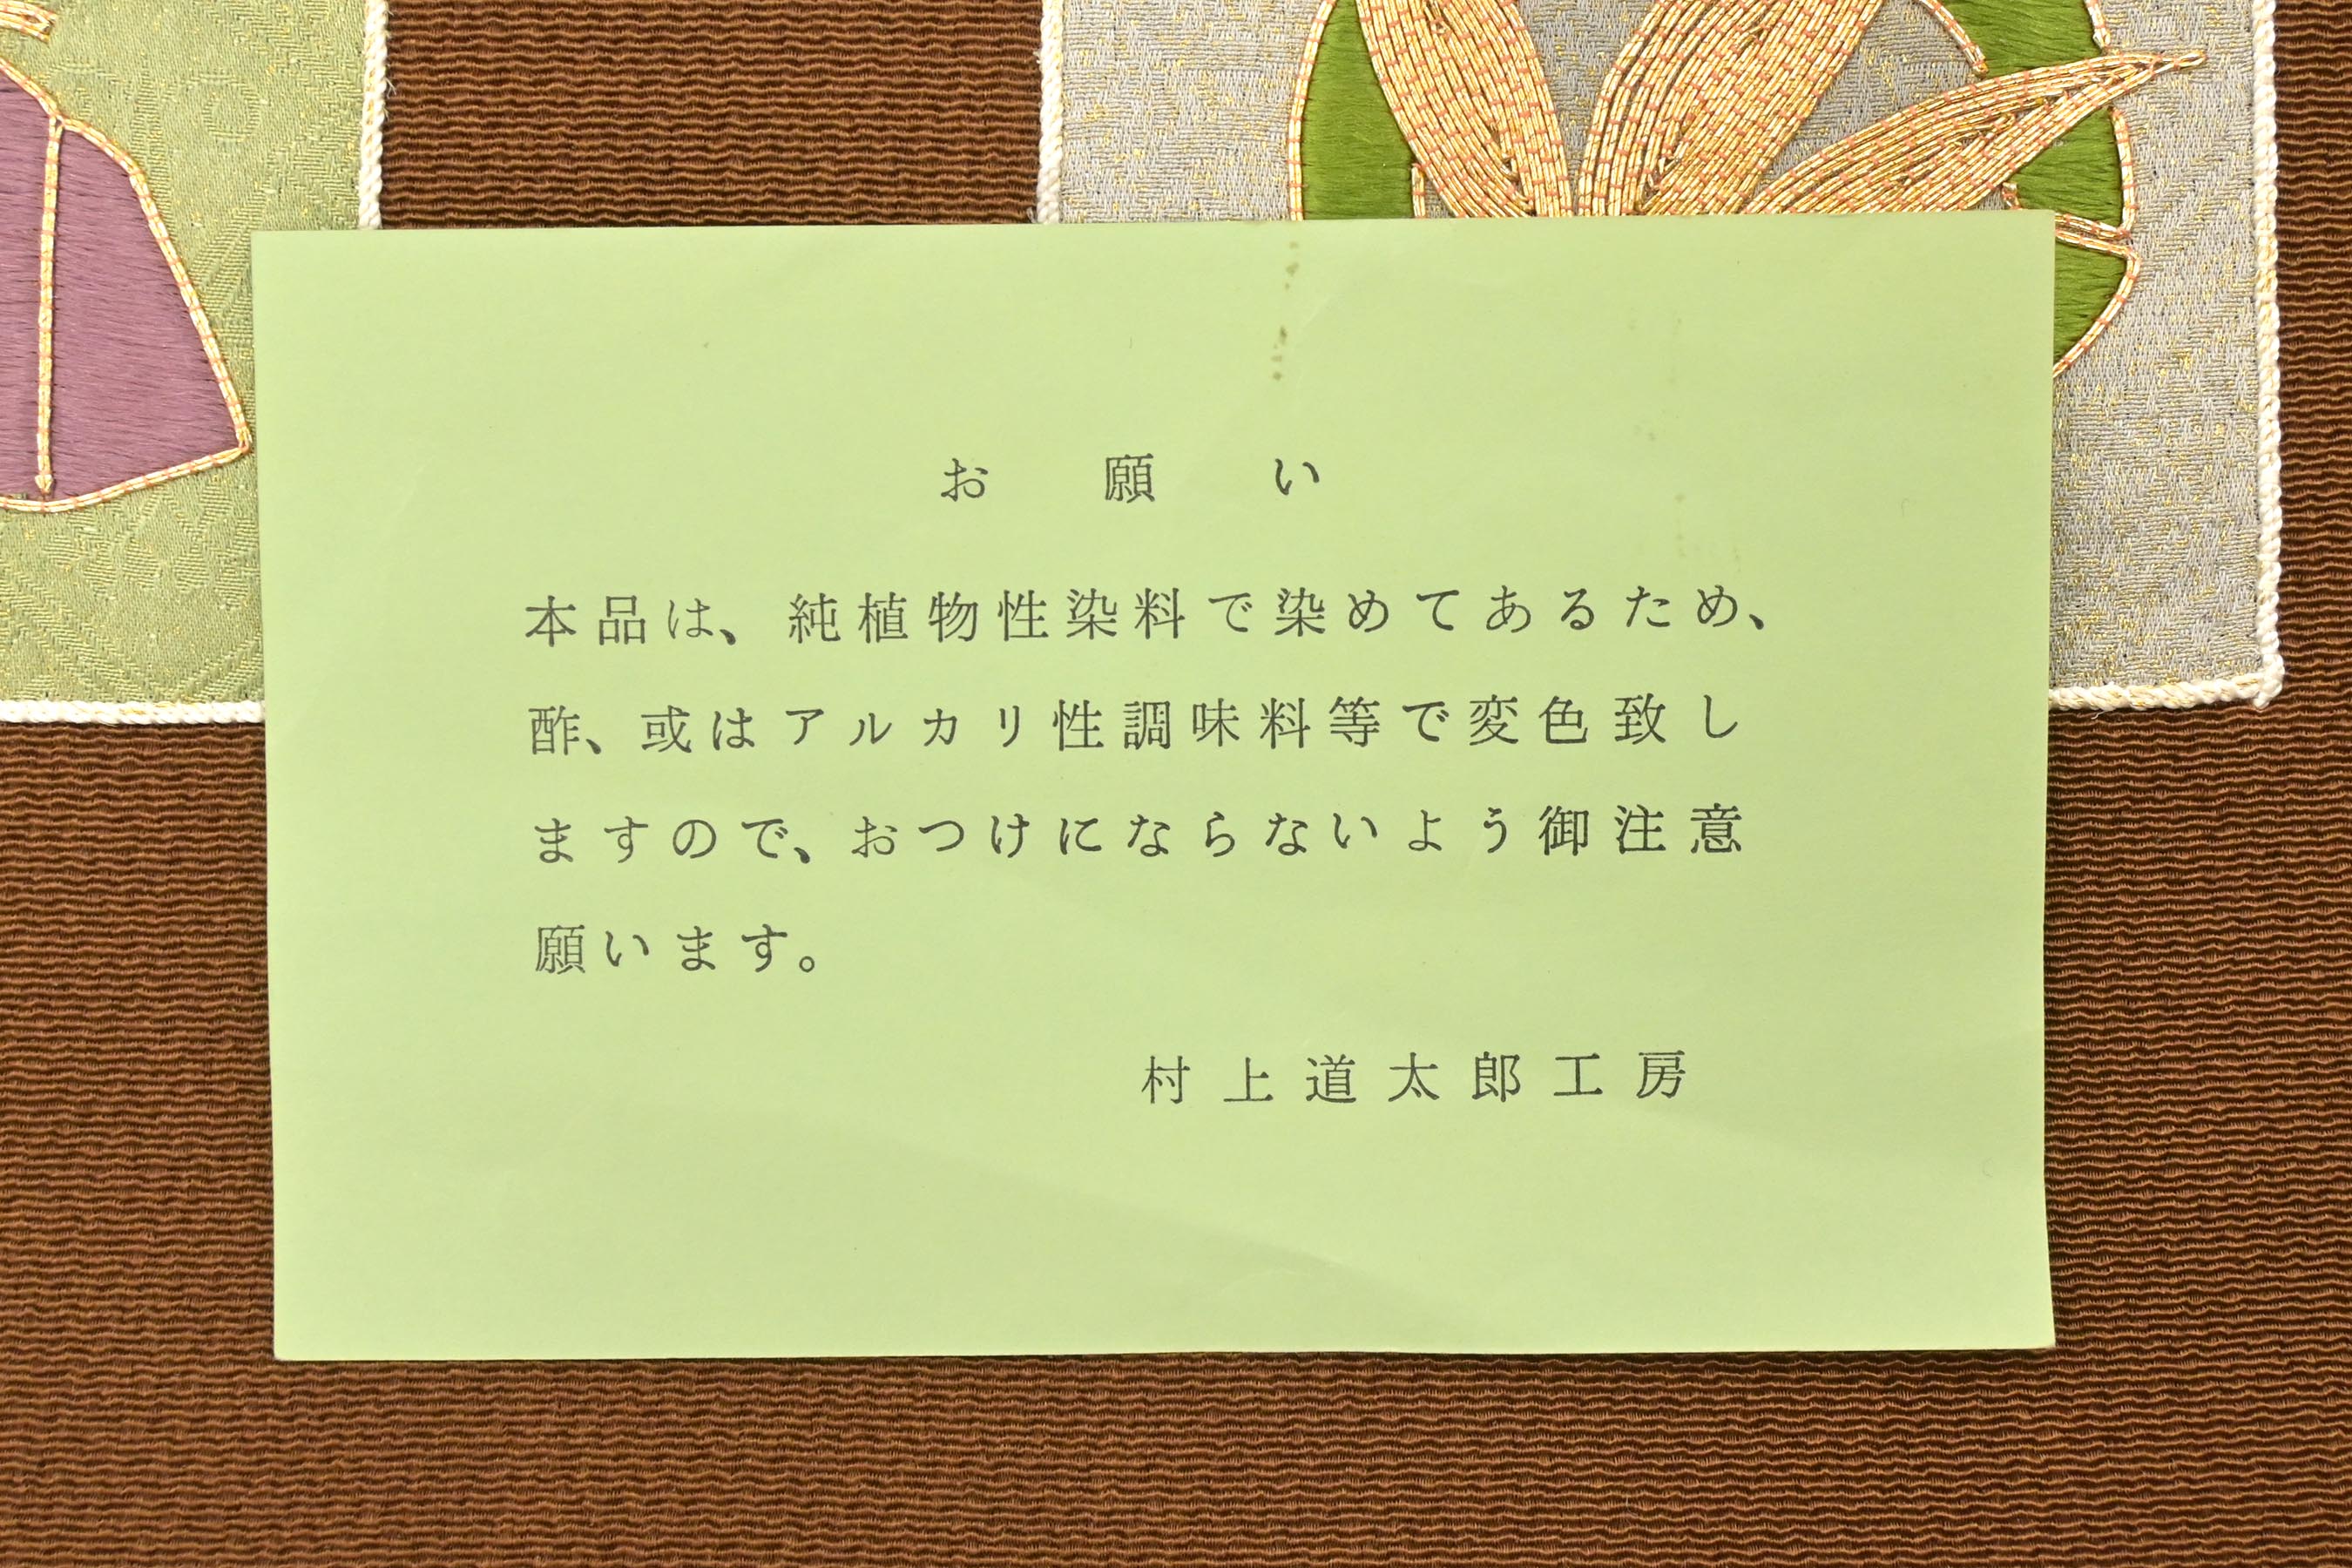 お願い
本品は、純植物性染料で染めてあるため、
酢、或はアルカリ性調味料等で変色致し
ますので、おつけにならないよう御注意
願います。
村上道太郎工房